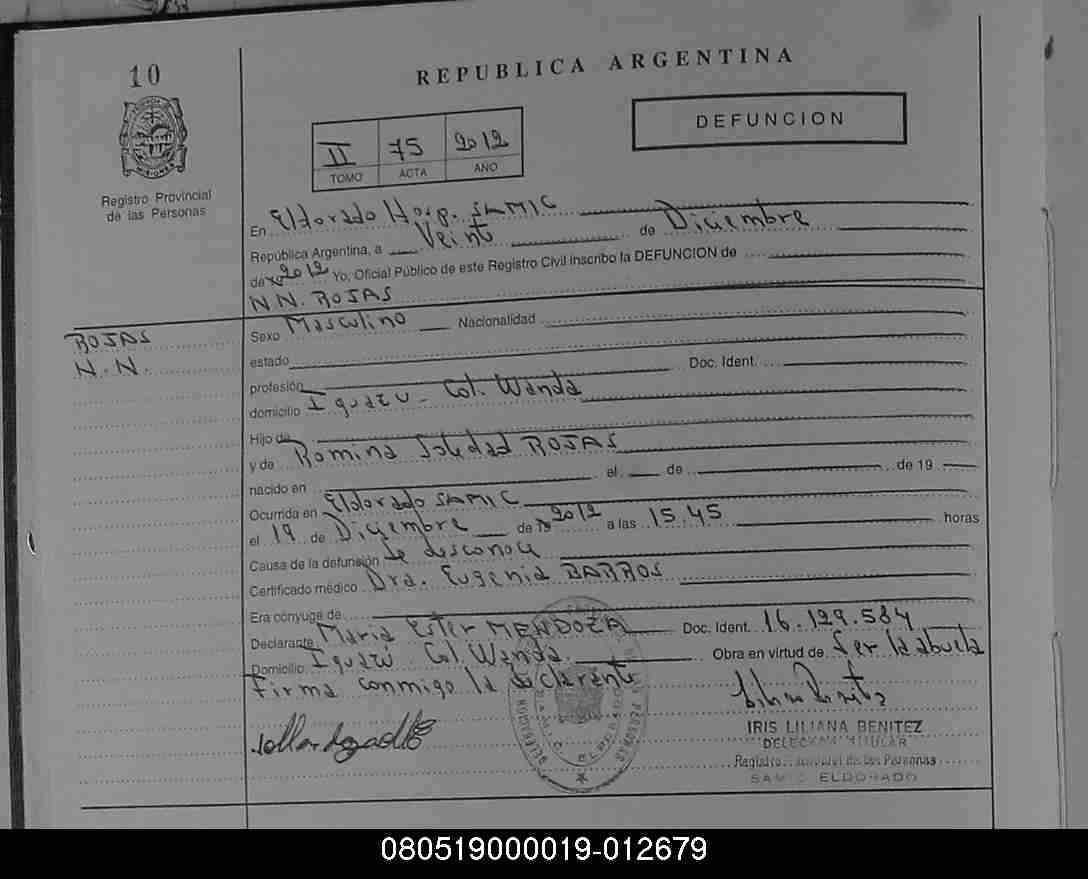 10
REPUBLICA ARGENTINA
DEFUNCION
II 75 2012
TOMO ACTA AÑO
Registro Provincial
de las Personas
En Eldorado Hosp. SAMIC
República Argentina, a Veinte de Diciembre
de 2012 Yo, Oficial Público de este Registro Civil inscribo la DEFUNCION de
NN. ROJAS
ROJAS
N.N.
Sexo Masculino Nacionalidad
estado
profesión Doc. Ident.
domicilio Iguazu - Col. Wanda
Hijo de
y de Romina Soledad ROJAS
nacido en el de de 19
Ocurrida en Eldorado SAMIC
el 19 de Diciembre de 2012 a las 15.45 horas
Causa de la defunción se desconoce
Certificado médico Dra. Eugenia BARROS
Era cónyuge de
Declarante Maria Ester MENDOZA Doc. Ident. 16.129.584
Domicilio Iguazú Col. Wanda. Obra en virtud de ser la abuela
Firma conmigo la declarante
IRIS LILIANA BENITEZ
TITULAR
Registro de las Personas
SAMIC ELDORADO
080519000019-012679